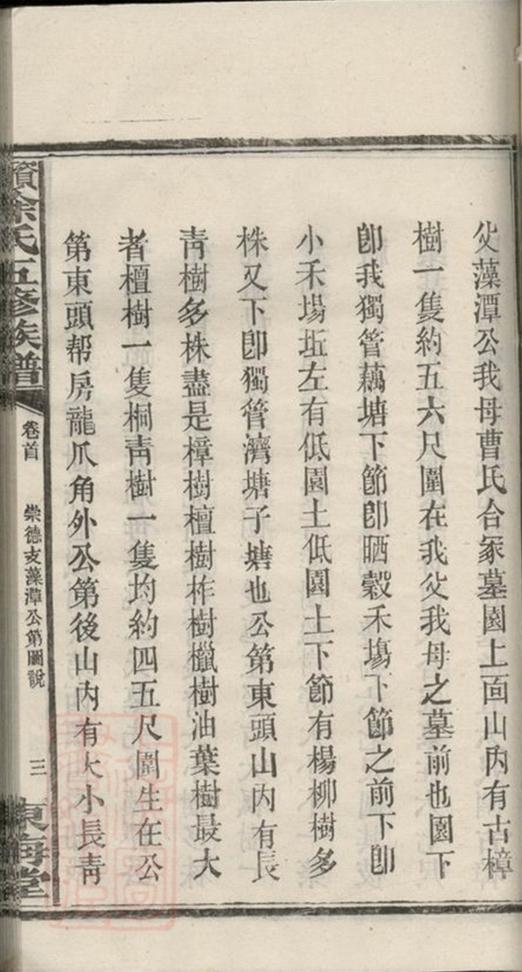 父藻潭公我母曹氏合冢墓園上面山內有古樟
樹一隻約五六尺圍在我父我母之墓前也園下
卽我獨管藕塘下節卽晒穀禾塲下節之前下卽
小禾場坵左有低園土低園土下節有楊柳樹多
株又下卽獨管濟塘子塘也公第東頭山內有長
靑樹多株盡是樟樹檀樹柞樹櫼樹油葉樹最大
者檀樹一隻桐靑樹一隻均約四五尺圍生在公
第東頭帮房龍爪角外公第後山內有大小長靑
資徐氏五修族譜
卷首
崇德支藻潭公第圖說
三
東海堂